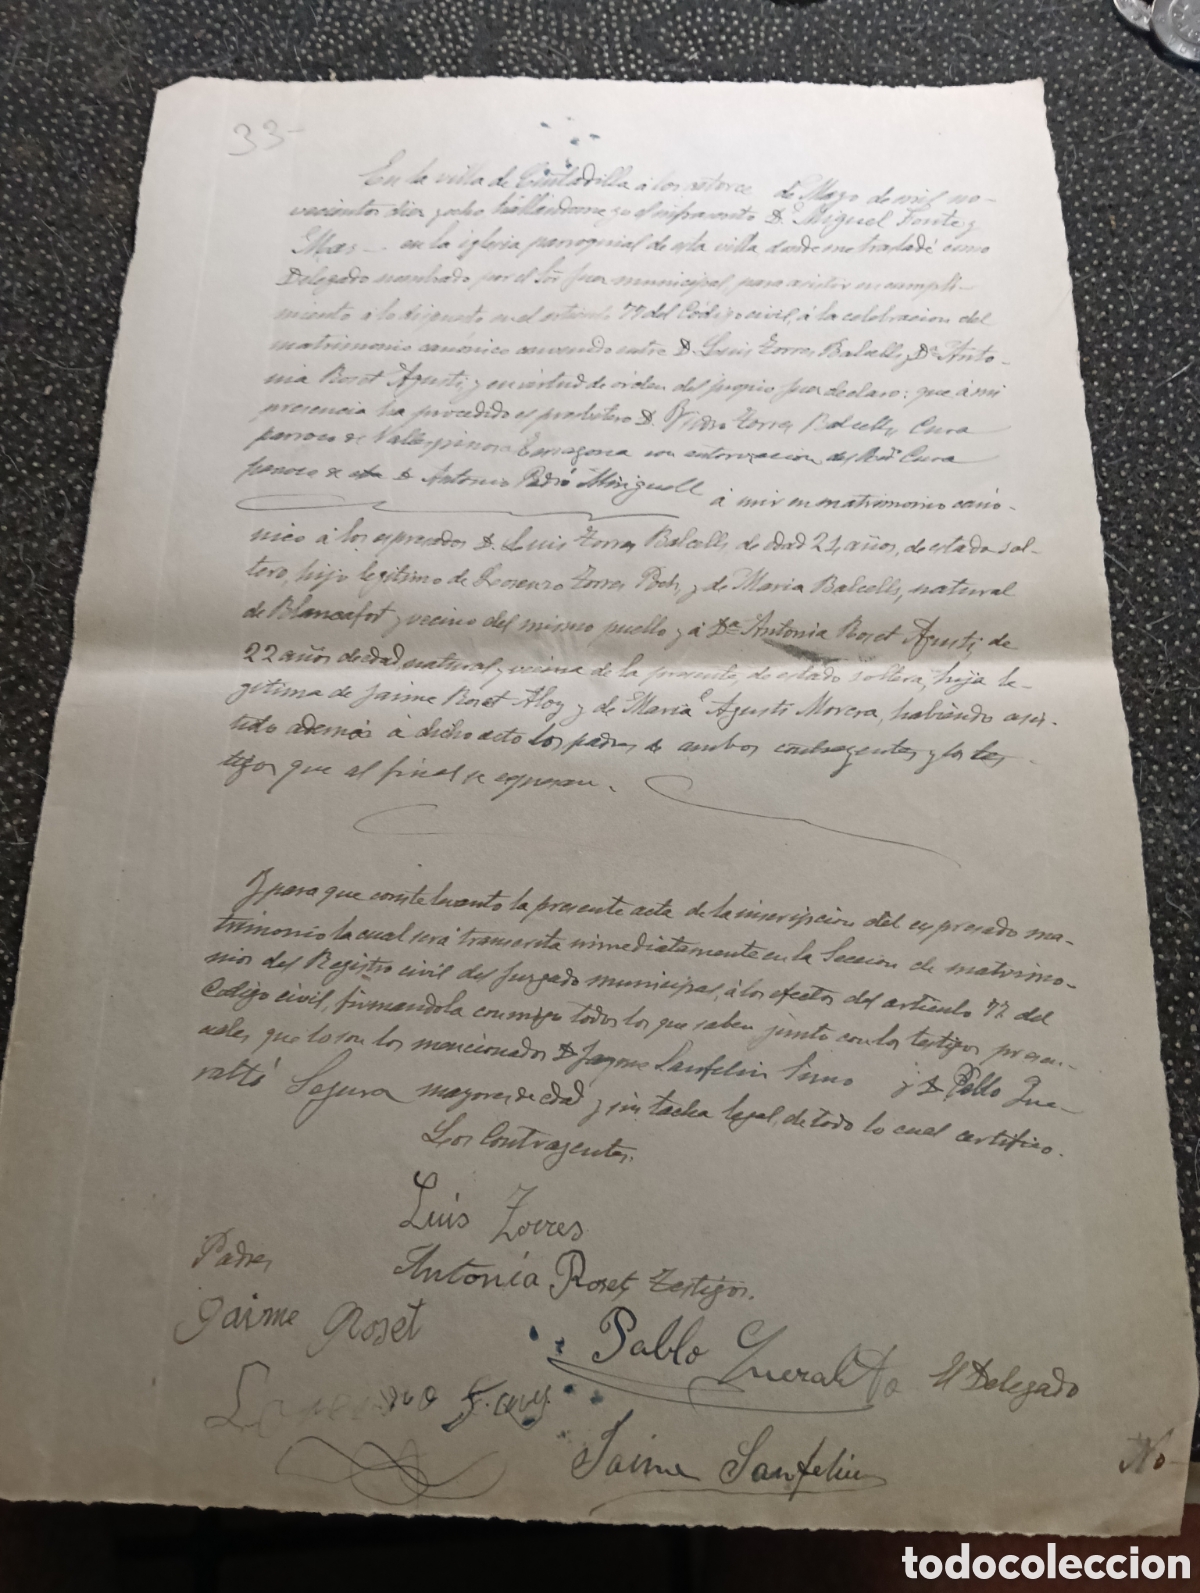 33-
En la villa de Ciutadilla á los catorce de Mayo de mil no-
vecientos diez y ocho hallándome yo el infrascrito D. Miguel Fonte y
Mas en la iglesia parroquial de esta villa donde me trasladé como
Delegado nombrado por el Sõr Juez municipal, para asistir en cumpli-
miento á lo dispuesto en el artículo 77 del Código civil, á la celebracion del
matrimonio canónico convenido entre D. Luis Torres Balcells y Dª Anto-
nia Roset Agustí y en virtud de órden del propio Juez declaro: que á mi
presencia ha procedido el presbítero D. Torres Balcells Cura
párroco de Vallespinosa Tarragona con autorización del Rdº Cura
párroco de esta D. Antonio Padró Minguell
á unir en matrimonio canó-
nico á los expresados D. Luis Torres Balcells de edad 24 años, de estado sol-
tero, hijo legítimo de Lorenzo Torres y de Maria Balcells, natural
de Blancafort y vecino del mismo pueblo y á Dª Antonia Roset Agustí de
22 años de edad, natural y vecina de la presente, de estado soltera, hija le-
gítima de Jaime Roset Aloy y de Maria Agustí Morera, habiendo asis-
tido además á dicho acto los padres de ambos contrayentes y los tes-
tigos que al final se expresan.
Y para que conste levanto la presente acta de la inscripcion del expresado ma-
trimonio la cual será transcrita inmediatamente en la Seccion de matrimo-
nios del Registro civil del Juzgado municipal, á los efectos del artículo 77 del
Código civil, firmandola conmigo todos los que saben junto con los testigos presen-
ciales, que lo son los mencionados D. Jayme Sanfeliu y D. Pablo Que-
raltó Segura mayores de edad y sin tacha legal, de todo lo cual certifico.
Los Contrayentes.
Luis Torres
Padres
Antónia Roset Testigos.
Jaime Roset
Pablo Queraltó El Delegado
Jaime Sanfeliu
No-
todocoleccion